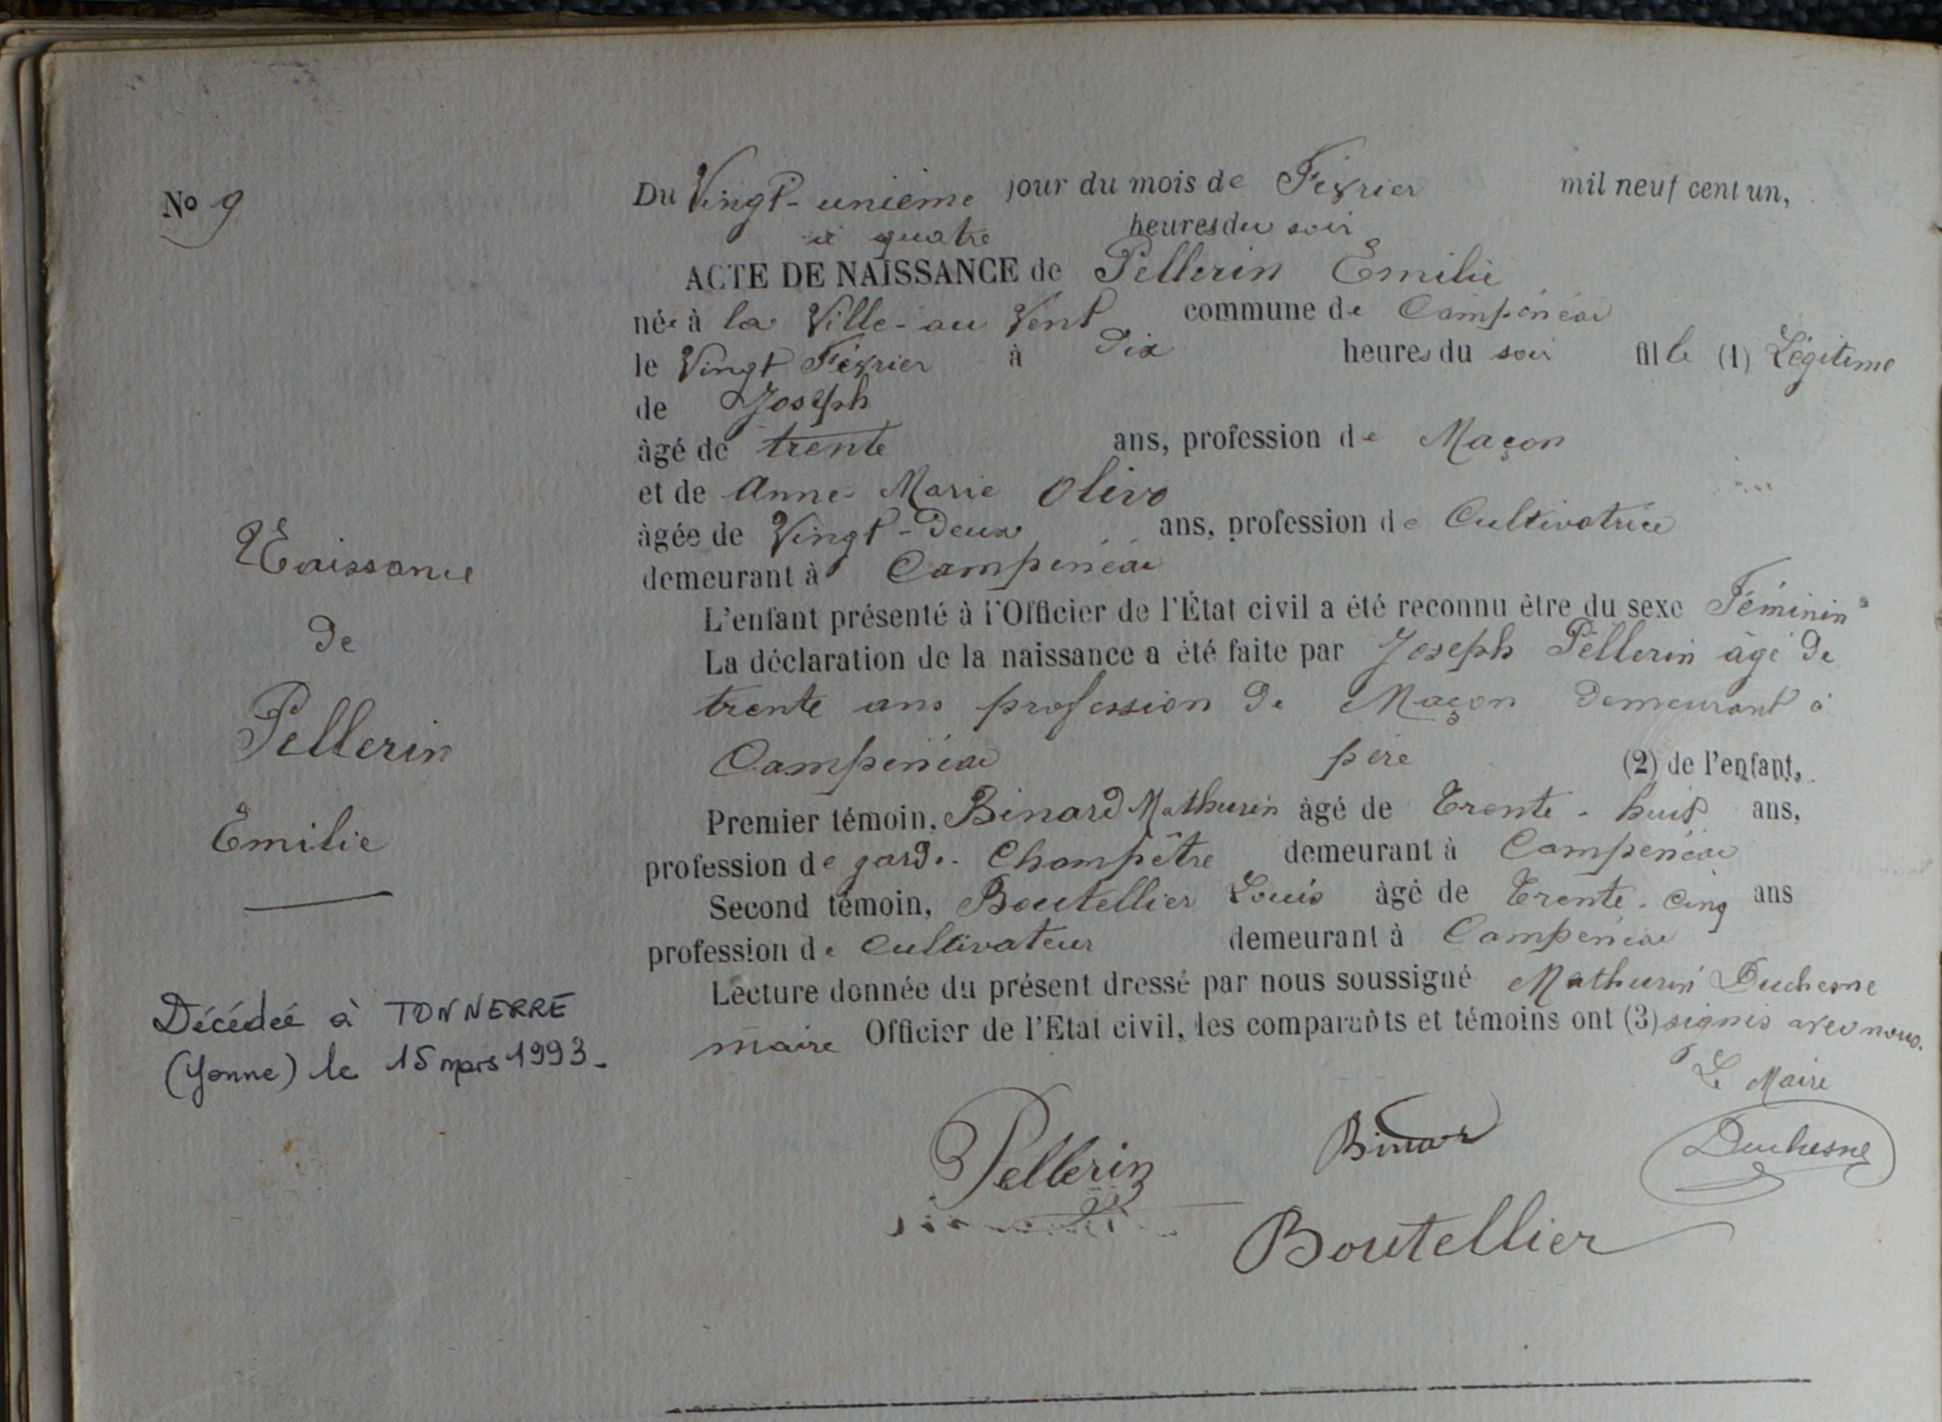 No 9
Naissance
de
Pellerin
Emilie
Décédée à TONNERRE
(Yonne) le 15 mars 1993.
Du Vingt-unième jour du mois de Février mil neuf cent un,
à quatre heures du soir
ACTE DE NAISSANCE de Pellerin Emilie
née à la Ville-au Vent commune de Campénéac
le Vingt Février à dix heures du soir fille (1) Légitime
de Joseph
âgé de trente ans, profession de Maçon
et de Anne-Marie Olivo
âgée de Vingt-deux ans, profession de Cultivatrice
demeurant à Campénéac
L'enfant présenté à l'Officier de l'État civil a été reconnu être du sexe Féminin
La déclaration de la naissance a été faite par Joseph Pellerin âgé de
trente ans profession de Maçon demeurant à
Campénéac père (2) de l'enfant,
Premier témoin, Binard Mathurin âgé de Trente-huit ans,
profession de garde-Champêtre demeurant à Campénéac
Second témoin, Boutellier Louis âgé de Trente-cinq ans
profession de Cultivateur demeurant à Campénéac
Lecture donnée du présent dressé par nous soussigné Mathurin Duchesne
maire Officier de l'Etat civil, les comparants et témoins ont (3) signés avec nous.
Le Maire
Pellerin Binar Duchesne
Boutellier